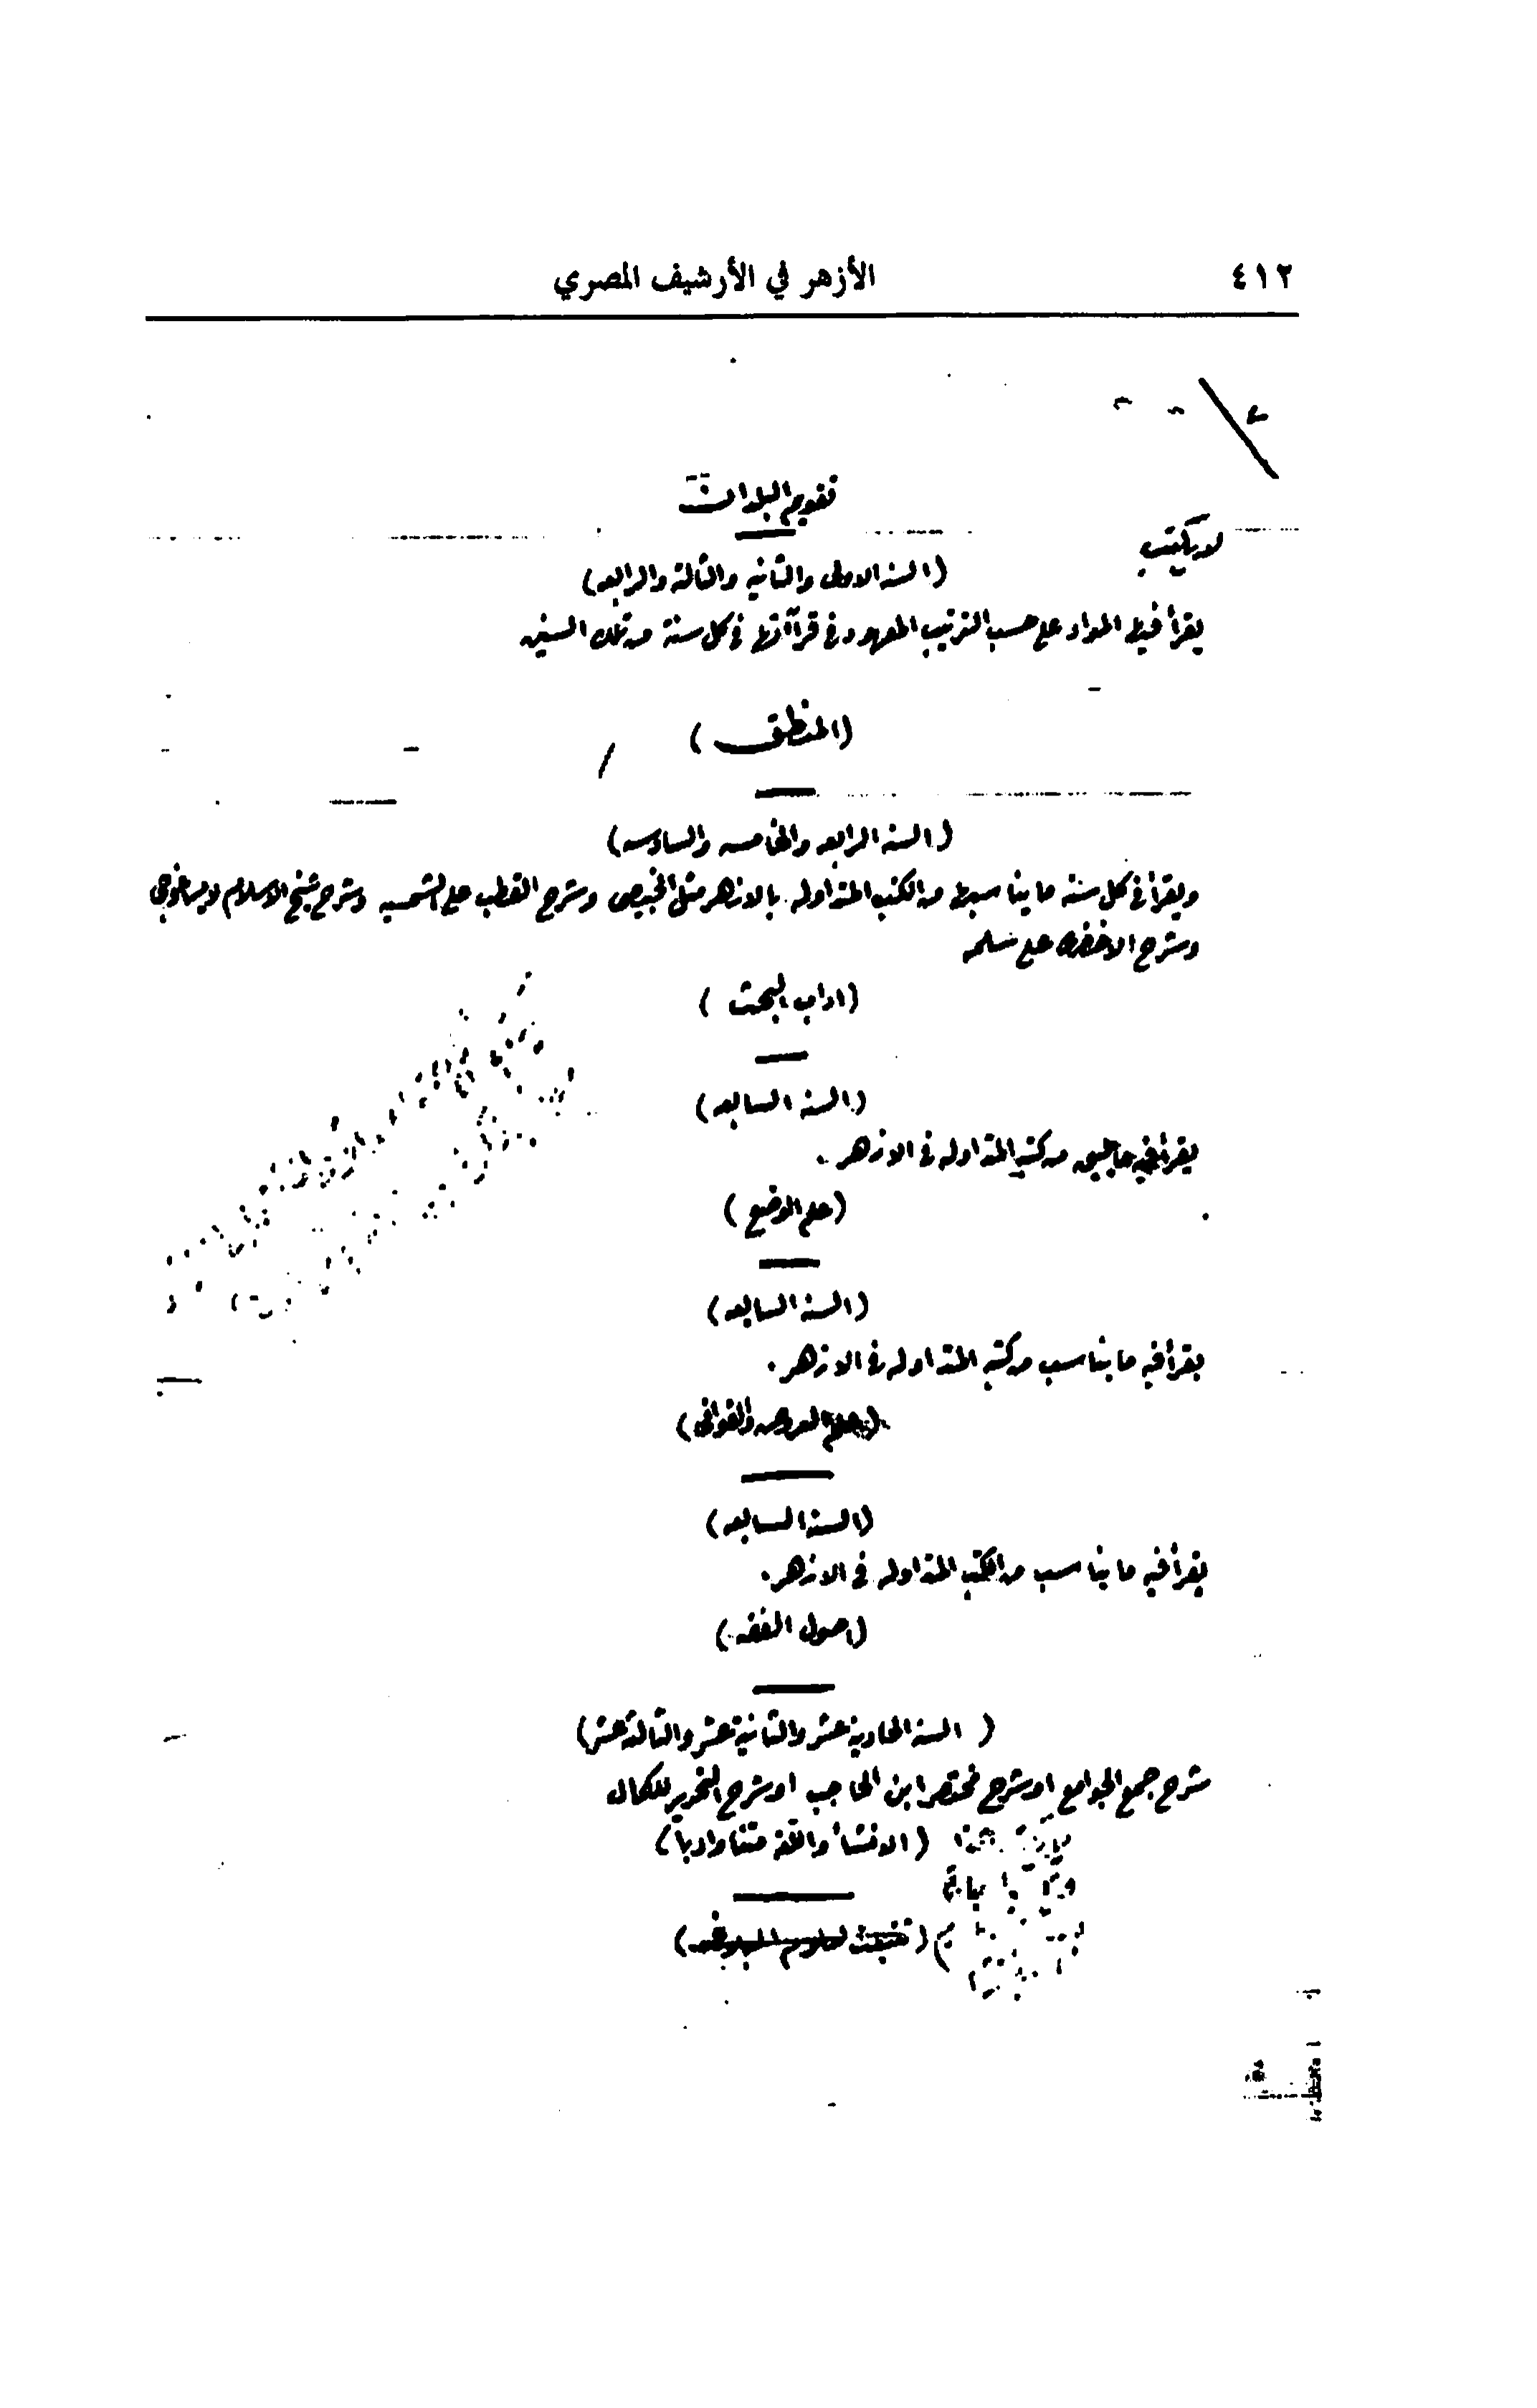 ٤١٢ الأزهر في الأرشيف المصري
تقويم البلدان
لا يكتب
(السنة الاولى والثانيه والثالثة والرابعه)
يقرأ فيها المواد على حسب الترتيب المعهود في قرآاتها في كل سنة من تلك السنين
(المنطق)
(السنة الرابعه والخامسه والسادسه)
ويقرأ في كل سنة ما يناسبها من الكتب المتداوله بالازهر مثل الخبيصى وشرح القطب على الشمسيه وشرح شيخ الاسلام لايساغوجى
وشرح الاخضرى على سلمه
(اداب البحث)
(السنة السابعه)
يقرأ فيه من كتبه المتداوله في الازهر.
(علم الوضع)
(السنة السابعه)
يقرأ فيه ما يناسب من كتبه المتداوله في الازهر.
(علم العروض والقوافى)
(السنة السابعه)
يقرأ فيه ما يناسب من الكتب المتداوله في الازهر.
(اصول الفقه)
(السنة الحادية عشر والثانية عشر والثالثة عشر)
شرح جمع الجوامع او شرح مختصر ابن الحاجب او شرح التحرير للكمال
(الانشأ واللغة متنا وادبا)